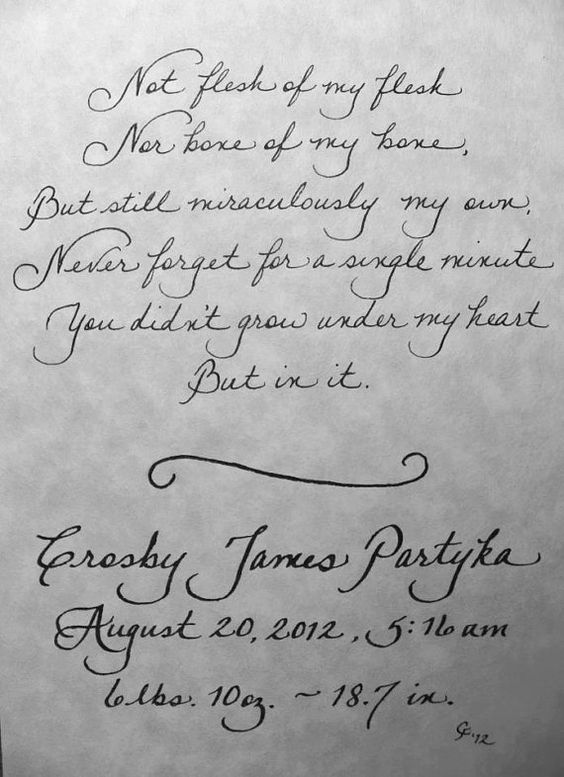 Not flesh of my flesh
Nor bone of my bone,
But still miraculously my own.
Never forget for a single minute
You didn't grow under my heart
But in it.
Crosby James Partyka
August 20, 2012, 5:16 am
6 lbs. 10 oz. ~ 18.7 in.
'12